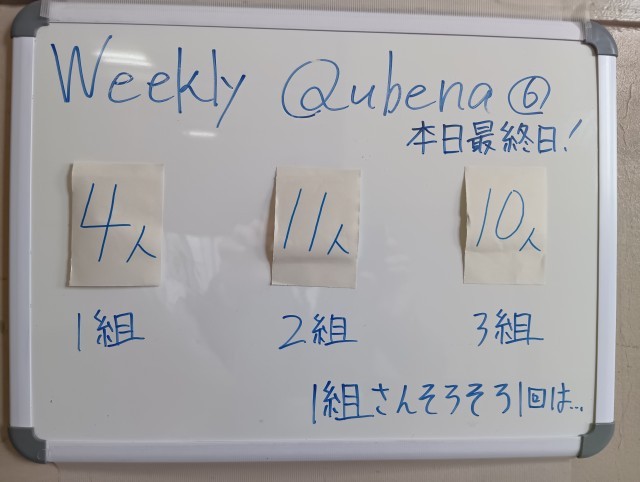 Weekly Qubena⑥
本日最終日!
4人 11人 10人
1組 2組 3組
1組さんそろそろ1回は...